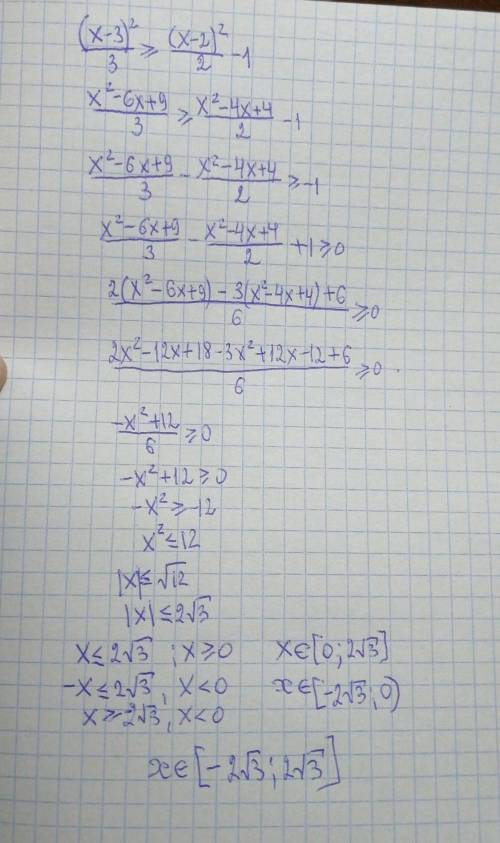 (x-3)²/3 ≥ (x-2)²/2 -1
x²-6x+9/3 ≥ x²-4x+4/2 -1
x²-6x+9/3 - x²-4x+4/2 ≥ -1
x²-6x+9/3 - x²-4x+4/2 +1≥0
2(x²-6x+9)-3(x²-4x+4)+6/6 ≥0
2x²-12x+18-3x²+12x-12+6/6 ≥0
-x²+12/6 ≥0
-x²+12≥0
-x²≥-12
x²≤12
|x|≤√12
|x|≤2√3
x≤2√3 ; x≥0 x∈[0;2√3]
-x≤2√3, x<0 x∈[-2√3;0)
x≥-2√3, x<0
x∈[-2√3;2√3]